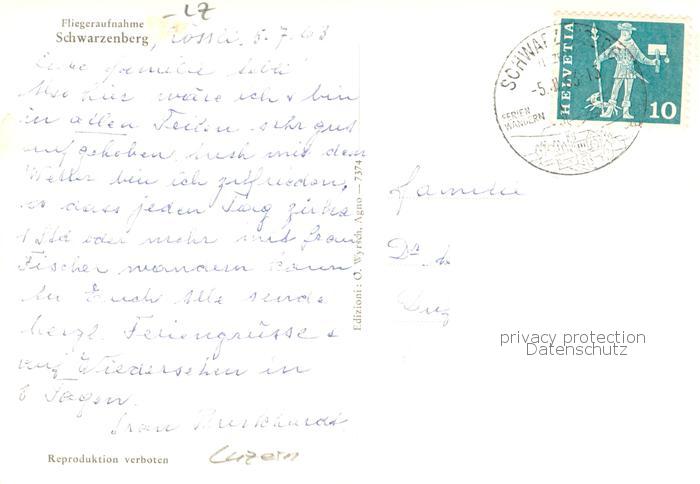 -LZ
Fliegeraufnahme
Schwarzenberg, Rössli, 5.7.68
Liebe Familie
Also hier wäre ich & bin
in allen Teilen sehr gut
aufgehoben, auch mit dem
Wetter bin ich zufrieden,
so dass jeden Tag zirka
1 Std oder mehr mit Frau
Fischer wandern kann
An Euch Alle sende
herzl. Feriengrüsse &
auf Wiedersehen in
8 Tagen.
Frau Burkhardt
Reproduktion verboten
Luzern
Edizioni: O. Wyrsch, Agno — 7374
SCHWARZENBERG
-5.
FERIEN
WANDERN
HELVETIA
10
Familie
Dr.
privacy protection
Datenschutz